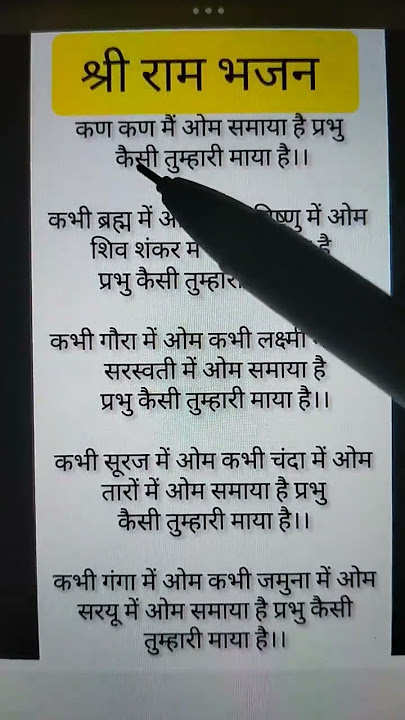 श्री राम भजन
कण कण मैं ओम समाया है प्रभु
कैसी तुम्हारी माया है।।
कभी ब्रह्म में विष्णु में ओम
शिव शंकर में है
प्रभु कैसी तुम्हारी
कभी गौरा में ओम कभी लक्ष्मी
सरस्वती में ओम समाया है
प्रभु कैसी तुम्हारी माया है।।
कभी सूरज में ओम कभी चंदा में ओम
तारों में ओम समाया है प्रभु
कैसी तुम्हारी माया है।।
कभी गंगा में ओम कभी जमुना में ओम
सरयू में ओम समाया है प्रभु कैसी
तुम्हारी माया है।।